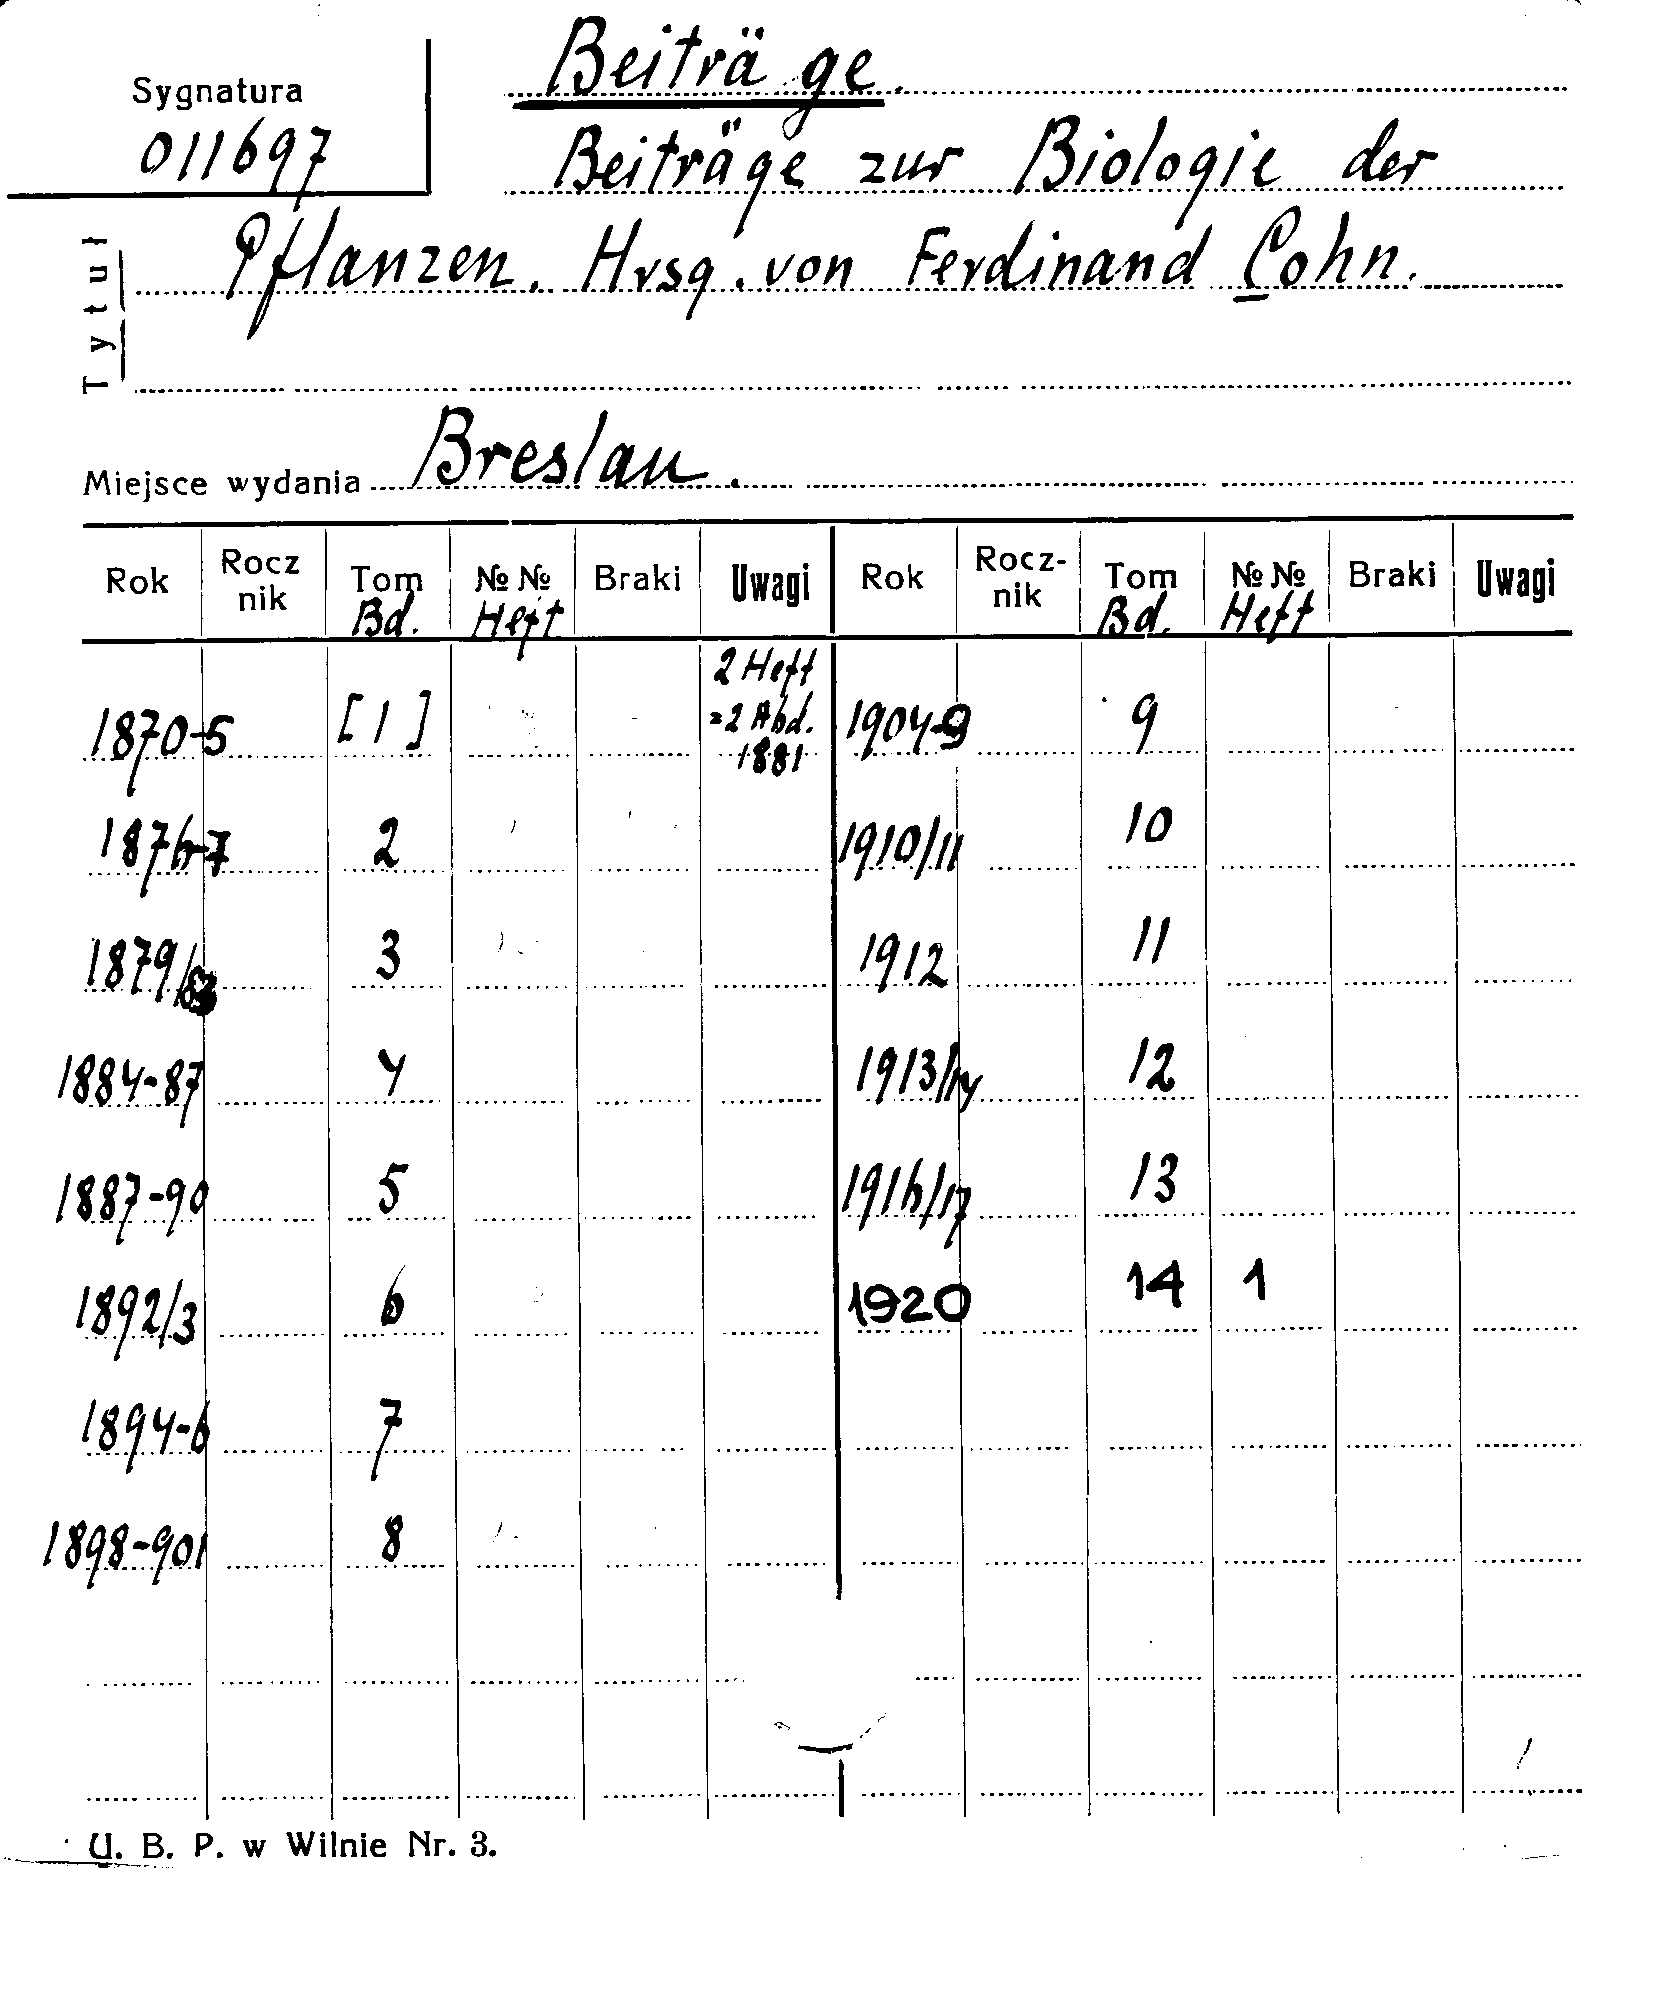 Beiträge.
Sygnatura
011697
Beiträge zur Biologie der
Tytuł
Pflanzen. Hrsg. von Ferdinand Cohn.
Miejsce wydania Breslau.
Rok Rocz nik Tom Bd. №№ Heft Braki Uwagi Rok Rocz- nik Tom Bd. №№ Heft Braki Uwagi
2 Heft
1870-5 [1] =2 Abd. 1904-9 9
1881
1876-7 2 1910/11 10
1879/83 3 1912 11
1884-87 4 1913/14 12
1887-90 5 1916/17 13
1892/3 6 1920 14 1
1894-6 7
1898-901 8
U. B. P. w Wilnie Nr. 3.